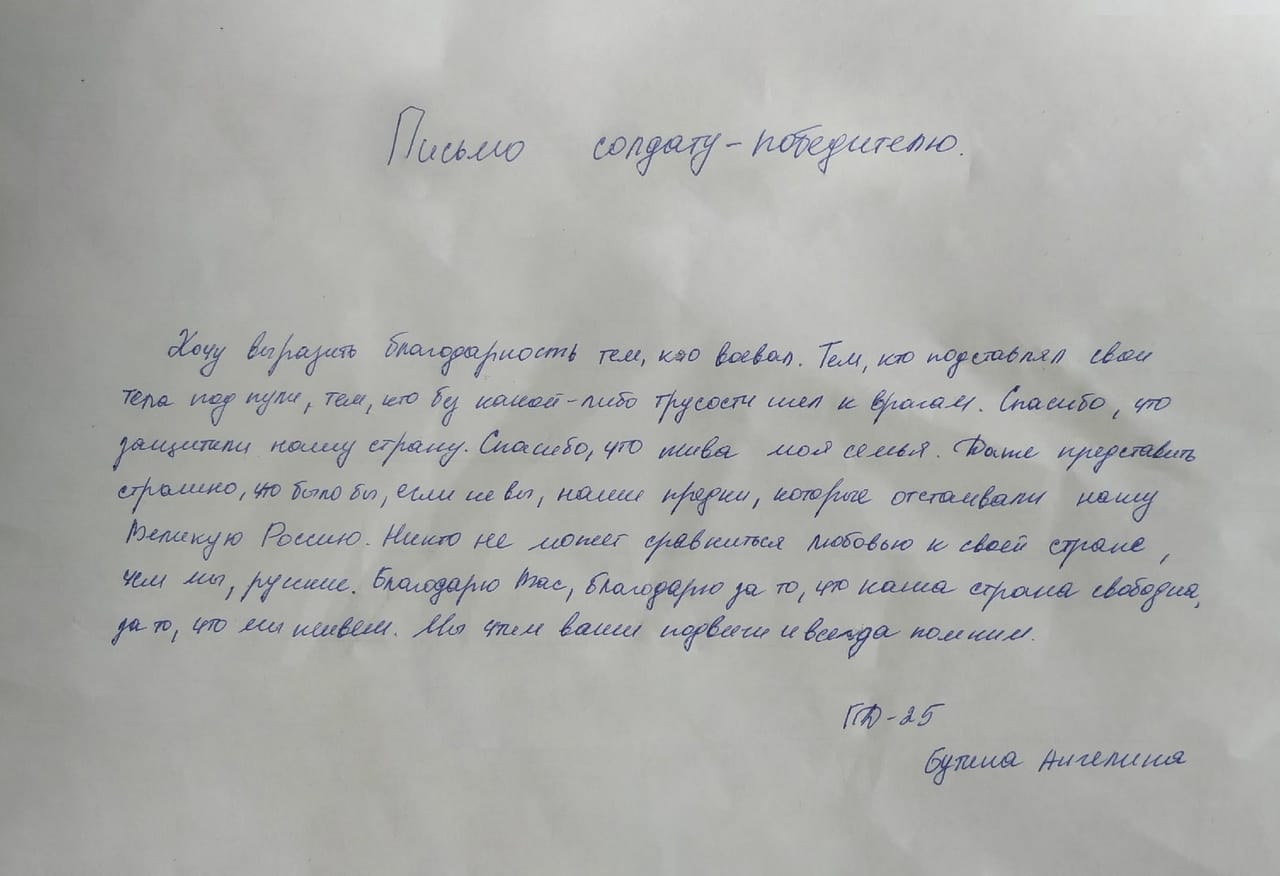 Письмо солдату-победителю.
Хочу выразить благодарность тем, кто воевал. Тем, кто подставлял свои
тела под пули, тем, кто без какой-либо трусости шел к врагам. Спасибо, что
защитили нашу страну. Спасибо, что жива моя семья. Даже представить
страшно, что было бы, если не вы, наши предки, которые отстаивали нашу
Великую Россию. Никто не может сравниться любовью к своей стране,
чем мы, русские. Благодарю Вас, благодарю за то, что наша страна свободна,
за то, что мы живем. Мы чтим ваши подвиги и всегда помним.
ПД-25
Бутина Ангелина